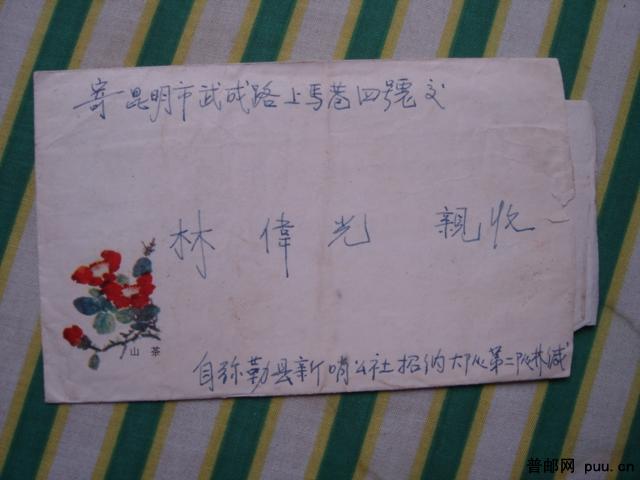 寄昆明市武成路上馬巷四號交
林 偉 光 親收
山 茶
自弥勒县新哨公社招纳大队第二队林缄
普邮网 puu.cn